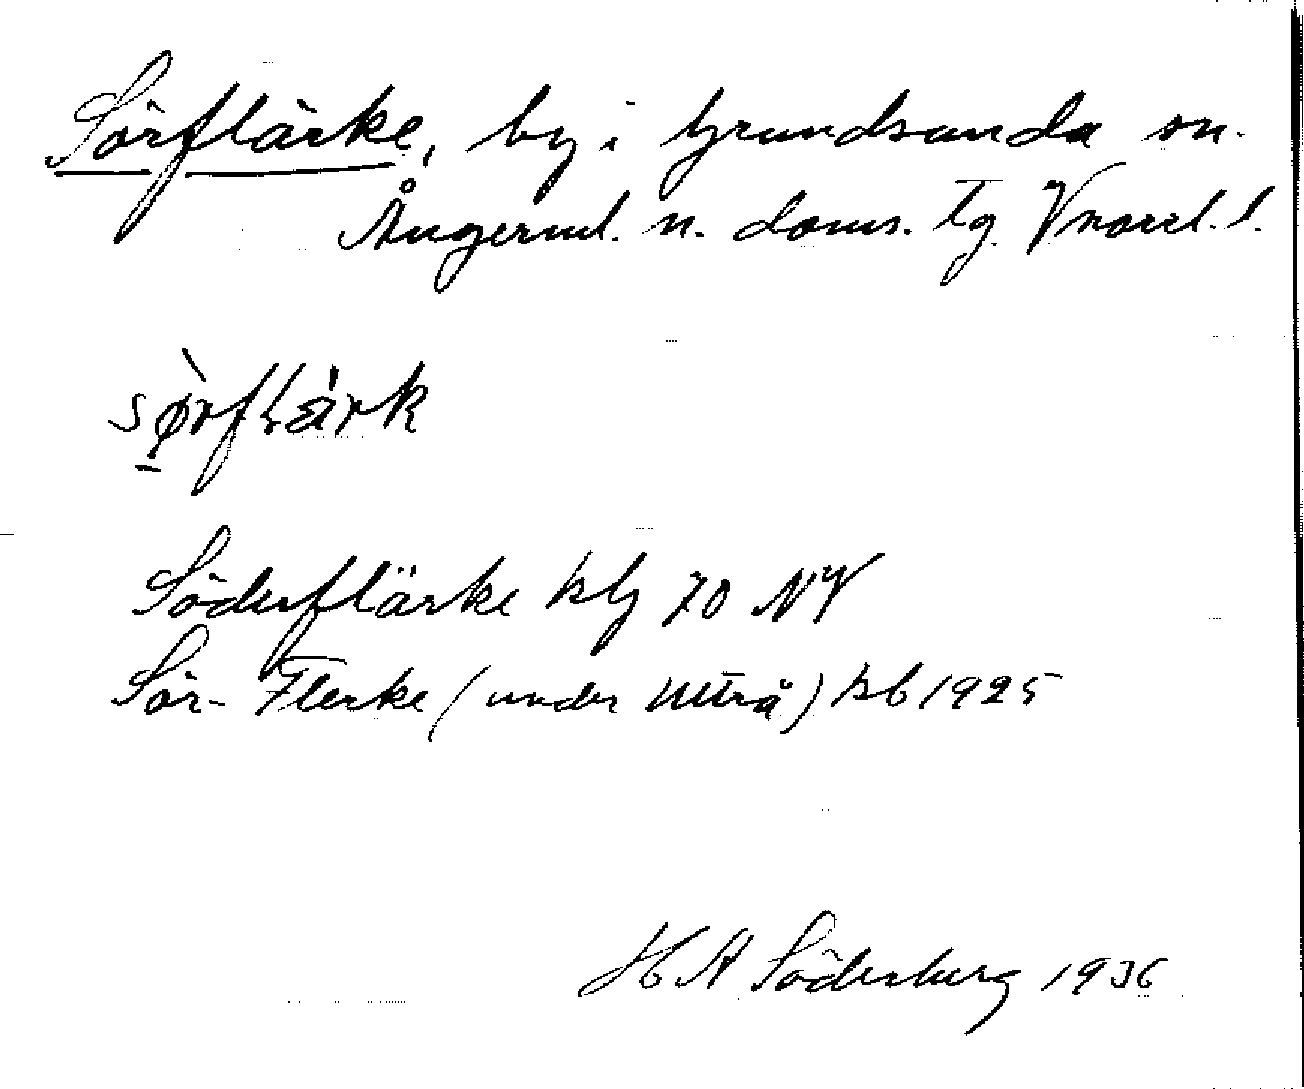 Sörflärke, by i Grundsunda sn.
Ångerml. n. doms. tg. Vnorrl. l.
Söderflärke klj 70 NV
Sör-Flerke (under Utterå) kb 1925
H A Söderberg 1936